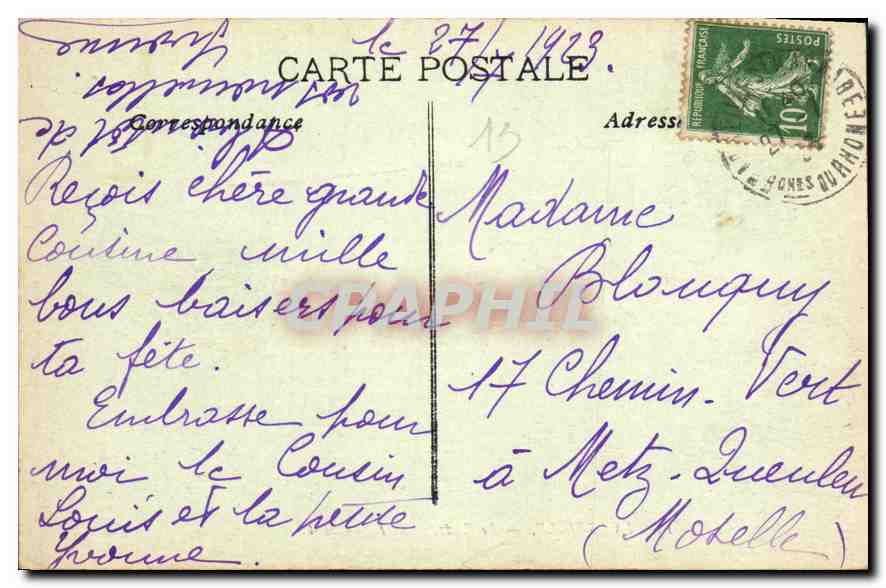 le 27/7 1923.
CARTE POSTALE
Correspondance
Adresse
RÉPUBLIQUE FRANÇAISE
POSTES
10
13
Reçois chère grande
Cousine mille
bons baisers pour
ta fête.
Embrasse pour
moi le Cousin
Louis et la petite
Yvonne.
de
vos nouvelles
Yvonne
Madame
Blouquy
17 Chemin-Vert
à Metz-Queuleu
(Moselle)
CRAPHIL